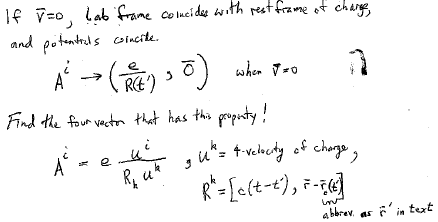 If v̄=0, Lab frame coincides with rest frame of charge,
and potentials coincide.
Aⁱ → (e/R(t′) , 0̄) when v̄=0
Find the four vector that has this property!
Aⁱ = e uⁱ/(R_k u^k) , u^k = 4-velocity of charge,
R^k = [c(t-t′), r̄-r̄ₑ(t′)]
abbrev. as r̄′ in text